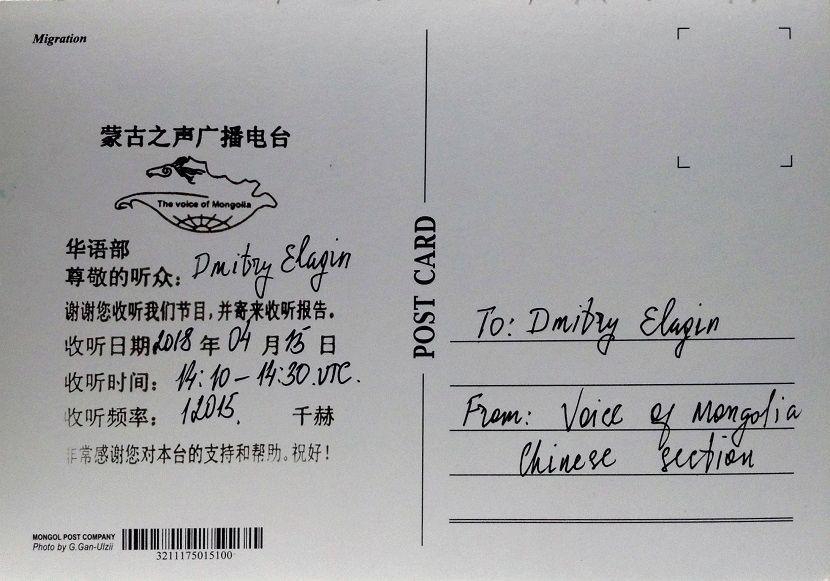 Migration
蒙古之声广播电台
The voice of Mongolia
华语部
尊敬的听众: Dmitry Elagin
谢谢您收听我们节目,并寄来收听报告。
收听日期2018 年 04 月 15 日
收听时间: 14:10-14:30.UTC.
收听频率: 12015. 千赫
非常感谢您对本台的支持和帮助。祝好!
MONGOL POST COMPANY
Photo by G.Gan-Ulzii
3211175015100
POST CARD
To: Dmitry Elagin
From: Voice of Mongolia
Chinese section